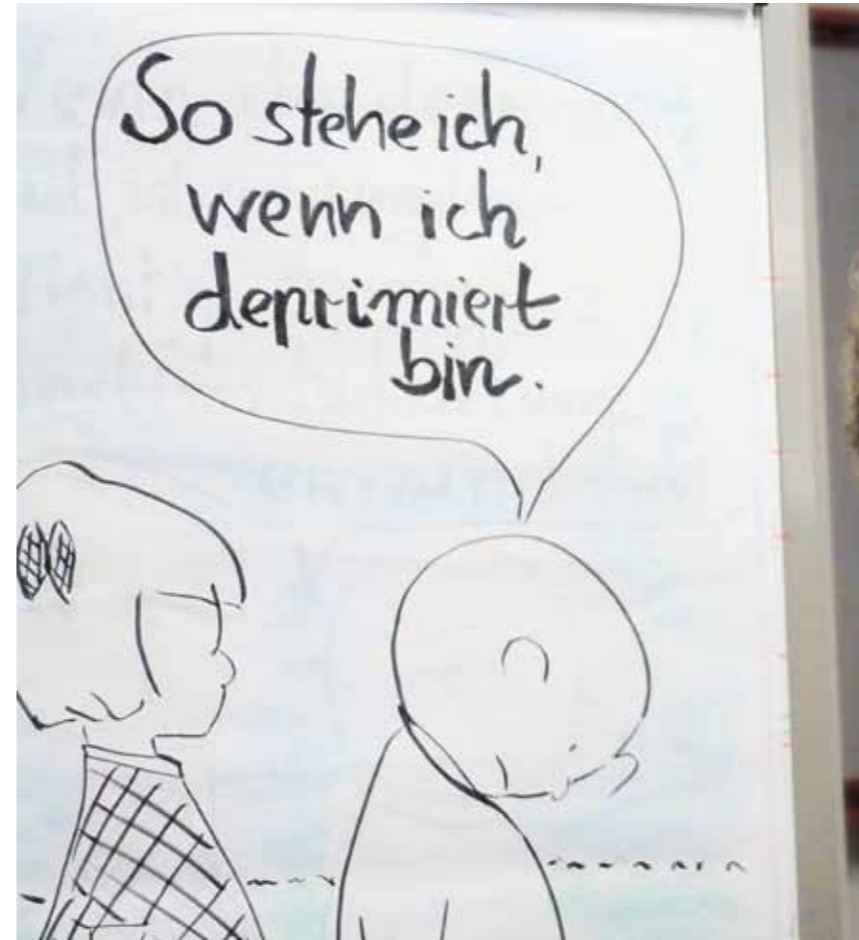 So stehe ich,
wenn ich
deprimiert
bin.